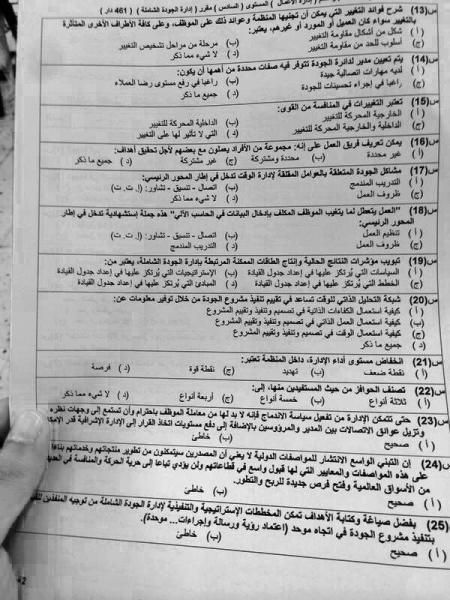 إدارة الأعمال ) المستوى ( السادس ) مقرر ( إدارة الجودة الشاملة ) ( 461 دار )
س(13) شرح فوائد التغيير التي يمكن أن تجنيها المنظمة وعوائد ذلك على الموظف، وعلى كافة الأطراف الأخرى المتأثرة
بالتغيير سواء كان العميل أو المورد أو غيرهم، يعتبر:
( أ ) شكل من أشكال مقاومة التغيير (ب) مرحلة من مراحل تشخيص التغيير
(ج) أسلوب للحد من مقاومة التغيير ( د ) لا شيء مما ذكر
س(14) يتم تعيين مدير لدائرة الجودة تتوفر فيه صفات محددة من أهمها أن يكون:
( أ ) لديه مهارات اتصالية جيدة (ب) راغبا في رفع مستوى رضا العملاء
(ج) راغبا في إجراء تحسينات للجودة ( د ) جميع ما ذكر
س(15) تعتبر التغييرات في المنافسة من القوى:
( أ ) الخارجية المحركة للتغيير (ب) الداخلية المحركة للتغيير
(ج) الداخلية والخارجية المحركة للتغيير ( د ) التي لا تأثير لها على التغيير
س(16) يمكن تعريف فريق العمل على إنه: مجموعة من الأفراد يعملون مع بعضهم لأجل تحقيق أهداف:
( أ ) غير محددة (ب) محددة ومشتركة (ج) غير مشتركة ( د ) جميع ما ذكر
س(17) مشاكل الجودة المتعلقة بالعوامل المقلقة لإدارة الوقت تدخل في إطار المحور الرئيسي:
( أ ) التدريب المندمج (ب) اتصال - تنسيق - تشاور: (إ. ت. ت)
(ج) ظروف العمل ( د ) جميع ما ذكر
س(18) "العمل يتعطل لما يتغيب الموظف المكلف بإدخال البيانات في الحاسب الآلي" هذه جملة إستشهادية تدخل في إطار
المحور الرئيسي:
( أ ) تنظيم العمل (ب) اتصال - تنسيق - تشاور: (إ. ت. ت)
(ج) ظروف العمل ( د ) التدريب المندمج
س(19) تبويب مؤشرات النتائج الحالية وإنتاج الطاقات الممكنة المرتبطة بإدارة الجودة الشاملة، يعتبر من:
( أ ) السياسات التي يُرتكز عليها في إعداد جدول القيادة (ب) الإستراتيجيات التي يُرتكز عليها في إعداد جدول القيادة
(ج) الخطط التي يُرتكز عليها في إعداد جدول القيادة ( د ) المبادئ التي يُرتكز عليها في إعداد جدول القيادة
س(20) شبكة التحليل الذاتي للوقت تساعد في تقييم تنفيذ مشروع الجودة من خلال توفير معلومات عن:
( أ ) كيفية استعمال الكفاءات الذاتية في تصميم وتنفيذ وتقييم المشروع
(ب) كيفية استعمال العمل الذاتي في تصميم وتنفيذ وتقييم المشروع
(ج) كيفية استعمال الوقت في تصميم وتنفيذ وتقييم المشروع
( د ) جميع ما ذكر
س(21) انخفاض مستوى أداء الإدارة، داخل المنظمة تعتبر:
( أ ) نقطة ضعف (ب) تهديد (ج) نقطة قوة ( د ) فرصة
س(22) تصنف الحوافز من حيث المستفيدين منها، إلى:
( أ ) ثلاثة أنواع (ب) خمسة أنواع (ج) أربعة أنواع ( د ) لا شيء مما ذكر
س(23) حتى تتمكن الإدارة من تفعيل سياسة الاندماج فإنه لا بد لها من معاملة الموظف باحترام وأن تستمع إلى وجهات نظره
وتزيل عوائق الاتصالات بين المدير والمرؤوسين بالإضافة إلى دفع مستويات اتخاذ القرار إلى الإدارة الإشرافية قدر
( أ ) صحيح (ب) خاطئ
س(24) إن التبني الواسع الانتشار للمواصفات الدولية لا يعني أن المصدرين سيتمكنون من تطوير منتجاتهم وخدماتهم بناءً
على هذه المواصفات والمعايير التي لها قبول واسع في قطاعاتهم ولن يؤدي تباعا إلى حرية الحركة والمنافسة في
من الأسواق العالمية وفتح فرص جديدة للربح والتطور.
( أ ) صحيح (ب) خاطئ
س(25) بفضل صياغة وكتابة الأهداف تمكن المخططات الإستراتيجية والتنفيذية لإدارة الجودة الشاملة من توجيه
بتنفيذ مشروع الجودة في اتجاه موحد (اعتماد رؤية ورسالة وإجراءات... موحدة).
( أ ) صحيح (ب) خاطئ